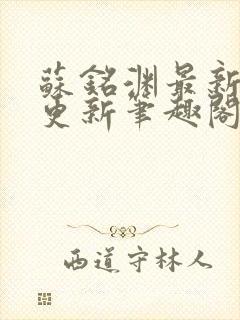 蘇銘渊最新
更新筆趣閣
西道守林人